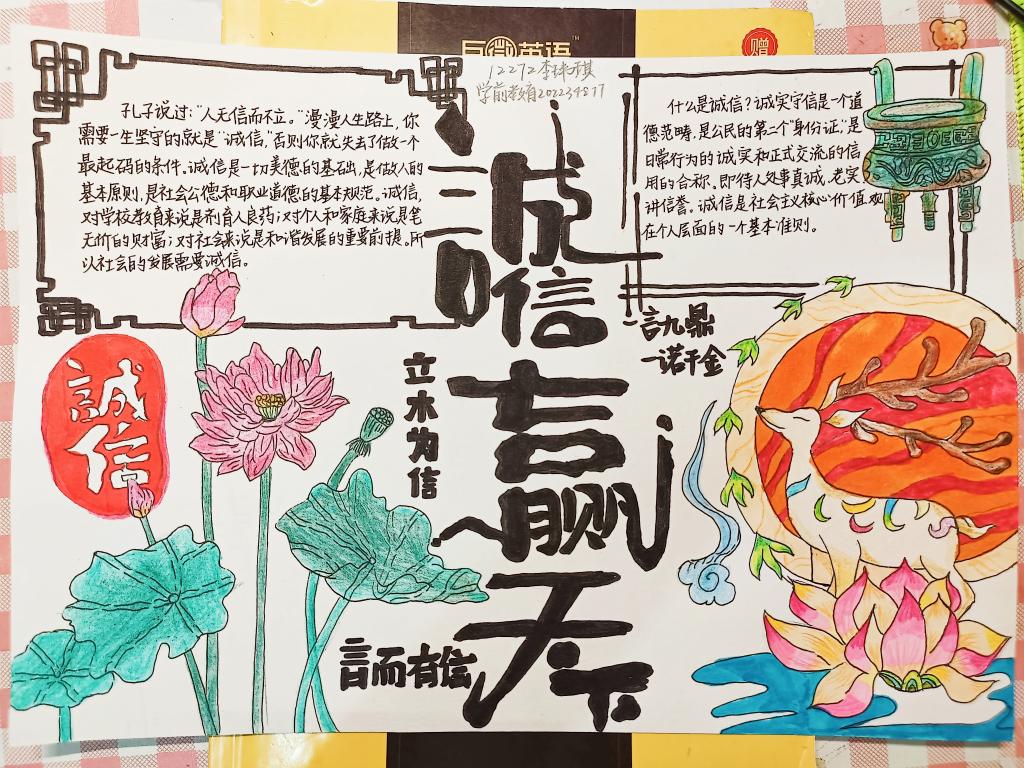 巨微英语
赠
12272李
学前教育202234817
孔子说过：“人无信而不立。”漫漫人生路上，你
需要一生坚守的就是“诚信，”否则你就失去了做一个
最起码的条件。诚信是一切美德的基础，是做人的
基本原则，是社会公德和职业道德的基本规范。诚信，
对学校教育来说是利育人良药；对个人和家庭来说是笔
无价的财富；对社会来说是和谐发展的重要前提。所
以社会的发展需要诚信。
诚信赢天下
什么是诚信？诚实守信是一个道
德范畴，是公民的第二个“身份证，”是
日常行为的诚实和正式交流的信
用的合称。即待人处事真诚、老实、
讲信誉。诚信是社会主义核心价值观
在个人层面的一个基本准则。
一言九鼎
一诺千金
誠信
立木为信
言而有信